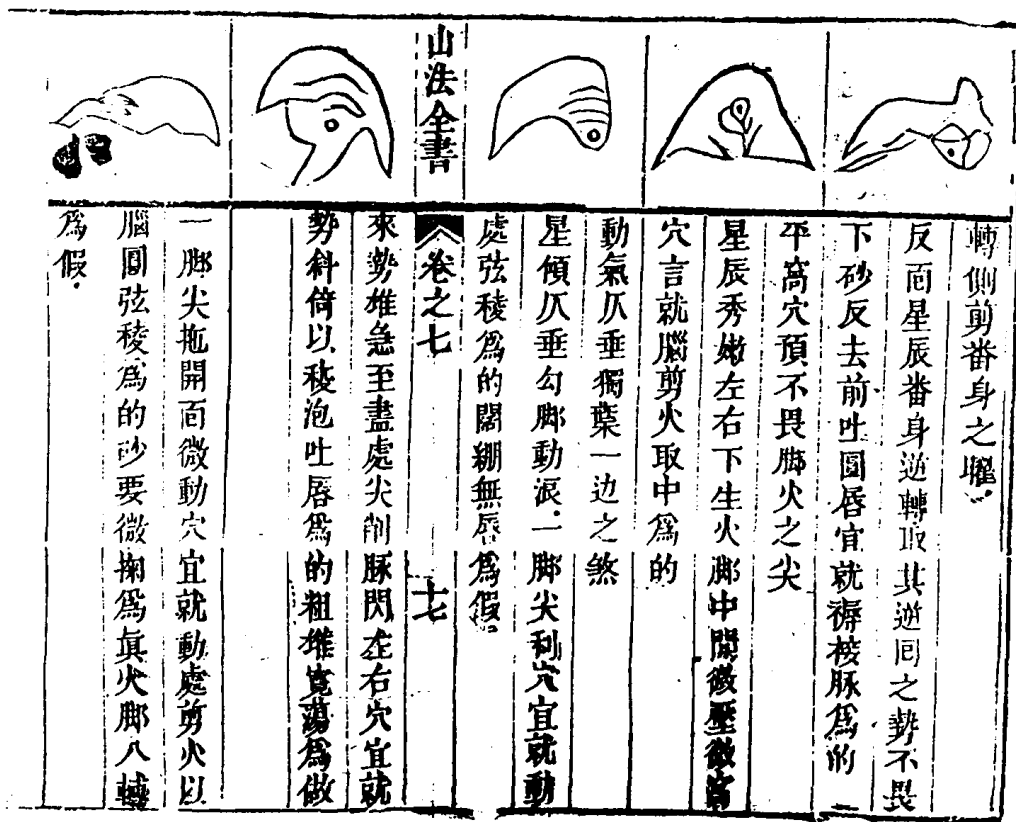 轉側剪番身之曜
反面星辰番身逆轉取其逆囘之勢不畏
下砂反去前吐圓唇宜就褥稜脉爲的
平窩穴預不畏脚火之尖
星辰秀嫩左右下生火脚中間微壓微窩
穴言就腦剪火取中爲的
動氣仄垂獨葉一边之煞
星傾仄垂勾脚動浪一脚尖利穴宜就動
處弦稜爲的闊綳無唇爲假
山法全書 卷之七 十七
來勢雄急至盡處尖削脉閃左右穴宜就
勢斜倚以稜泡吐唇爲的粗雄寬蕩爲做
一脚尖拖開面微動穴宜就動處剪火以
腦圓弦稜爲的砂要微掬爲眞火脚八轉
爲假